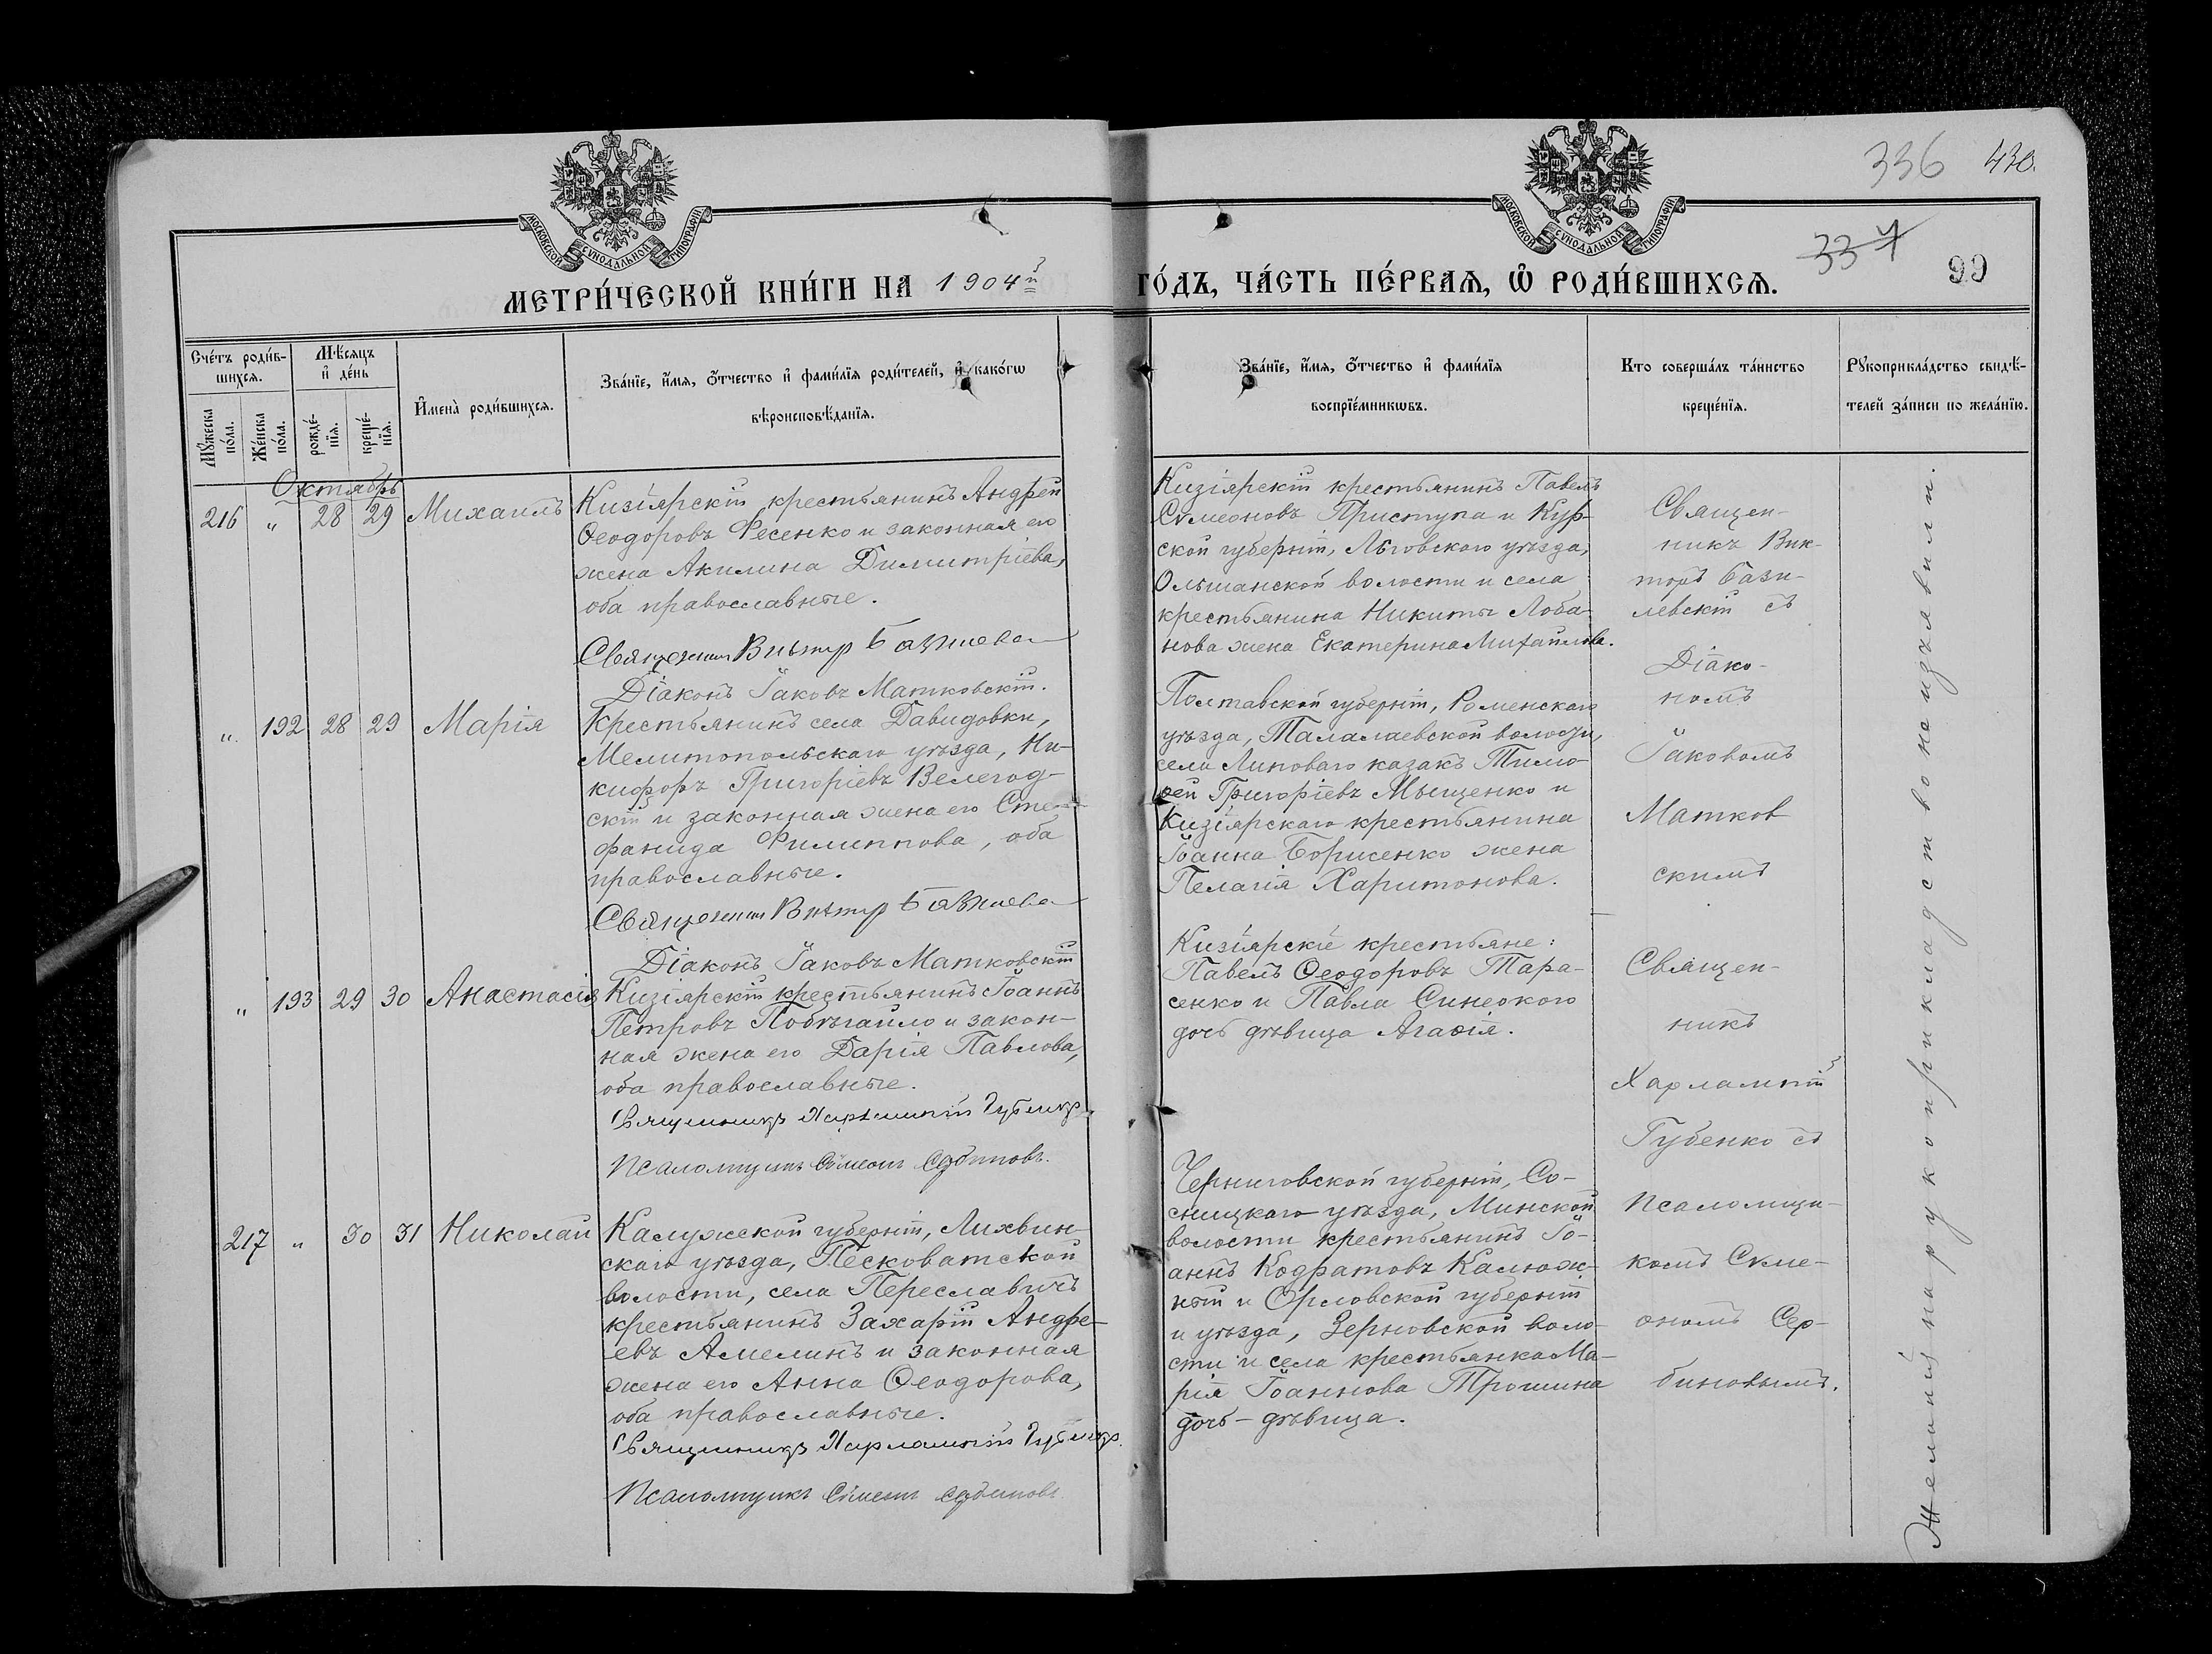 336 430.
337
99
МОСКОВСКОЙ СѴНОДАЛЬНОЙ ТИПОГРАФІИ
МОСКОВСКОЙ СѴНОДАЛЬНОЙ ТИПОГРАФІИ
МЕТРИ́ЧЕСКОЙ КНИ́ГИ НА 1904й
ГО́ДЪ, ЧА́СТЬ ПЕ́РВАѦ, Ѡ҆ РОДИ́ВШИХСѦ.
Сче́тъ роди́в-
шихсѧ.
Мѣ́сѧцъ
и҆ де́нь
Мꙋ́жеска
по́ла.
Же́нска
по́ла.
рожде́-
нїѧ.
креще́-
нїѧ.
И҆мена̀ роди́вшихсѧ.
Зва́нїе, и҆́мѧ, ѻ҆́тчество и҆ фами́лїѧ роди́телей, и҆ како́гѡ
вѣроисповѣ́данїѧ.
Зва́нїе, и҆́мѧ, ѻ҆́тчество и҆ фами́лїѧ
воспрїе́мникѡвъ.
Кто соверша́лъ та́инство
креще́нїѧ.
Рꙋкоприкла́дство свидѣ́-
телей за́писи по жела́нїю.
Октябрь
216 " 28 29 Михаилъ
Кизіярскій крестьянинъ Андрей
Ѳеодоровъ Фесенко и законная его
жена Акилина Димитріева,
оба православные.
Священникъ Викторъ Базилев
Діаконъ Іаковъ Матковскій.
Кизіярскій крестьянинъ Павелъ
Сѵмеоновъ Приступа и Кур-
ской губерніи, Льговскаго уѣзда,
Ольшанской волости и села
крестьянина Никиты Лоба-
нова жена Екатерина Михайлова.
Священ-
никъ Вик-
торъ Бази-
левскій съ
Діако-
номъ
Іаковомъ
Матков
скимъ
" 192 28 29 Марія
Крестьянинъ села Давидовки,
Мелитопольскаго уѣзда, Ни-
кифоръ Григоріевъ Велегод-
скій и законная жена его Сте-
фанида Филиппова, оба
православные.
Священникъ Викторъ Базилев
Діаконъ Іаковъ Матковскій
Полтавской губерніи, Роменскаго
уѣзда, Талалаевской волости,
села Липоваго казакъ Тимо-
ѳей Григоріевъ Мыщенко и
Кизіярскаго крестьянина
Іоанна Борисенко жена
Пелагія Харитонова.
" 193 29 30 Анастасія
Кизіярскій крестьянинъ Іоаннъ
Петровъ Побѣгайло и закон-
ная жена его Дарія Павлова,
оба православные.
Священникъ Харлампій Губенко
Псаломщикъ Сѵмеонъ Сербиновъ.
Кизіярскіе крестьяне:
Павелъ Ѳеодоровъ Тара-
сенко и Павла Синеокого
дочь дѣвица Агаѳія.
Священ-
никъ
Харлампій
Губенко съ
Псаломщи-
комъ Сѵме-
ономъ Сер-
биновымъ.
217 " 30 31 Николай
Калужской губерніи, Лихвин-
скаго уѣзда, Песковатской
волости, села Переславичъ
крестьянинъ Захарій Андре-
евъ Амелинъ и законная
жена его Анна Ѳеодорова,
оба православные.
Священникъ Харлампій Губенко
Псаломщикъ Сѵмеонъ Сербиновъ
Черниговской губерніи, Со-
сницкаго уѣзда, Минской
волости крестьянинъ Іо-
аннъ Кодратовъ Калюж-
ный и Орловской губерніи
и уѣзда, Зерновской воло-
сти и села крестьянка Ма-
рія Іоаннова Трошина
дочь - дѣвица.
Желаній на рукоприкладство не изъявили.